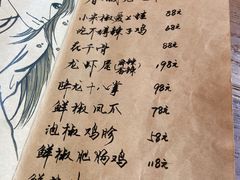 小米椒爱上娃 88元
吮不够辣子鸡 68元
花千骨 88元
龙虾尾(麻辣 香辣) 198元
卧龙十八掌 98元
鲜椒凤爪 78元
泡椒鸡胗 58元
鲜椒肥肠鸡 118元